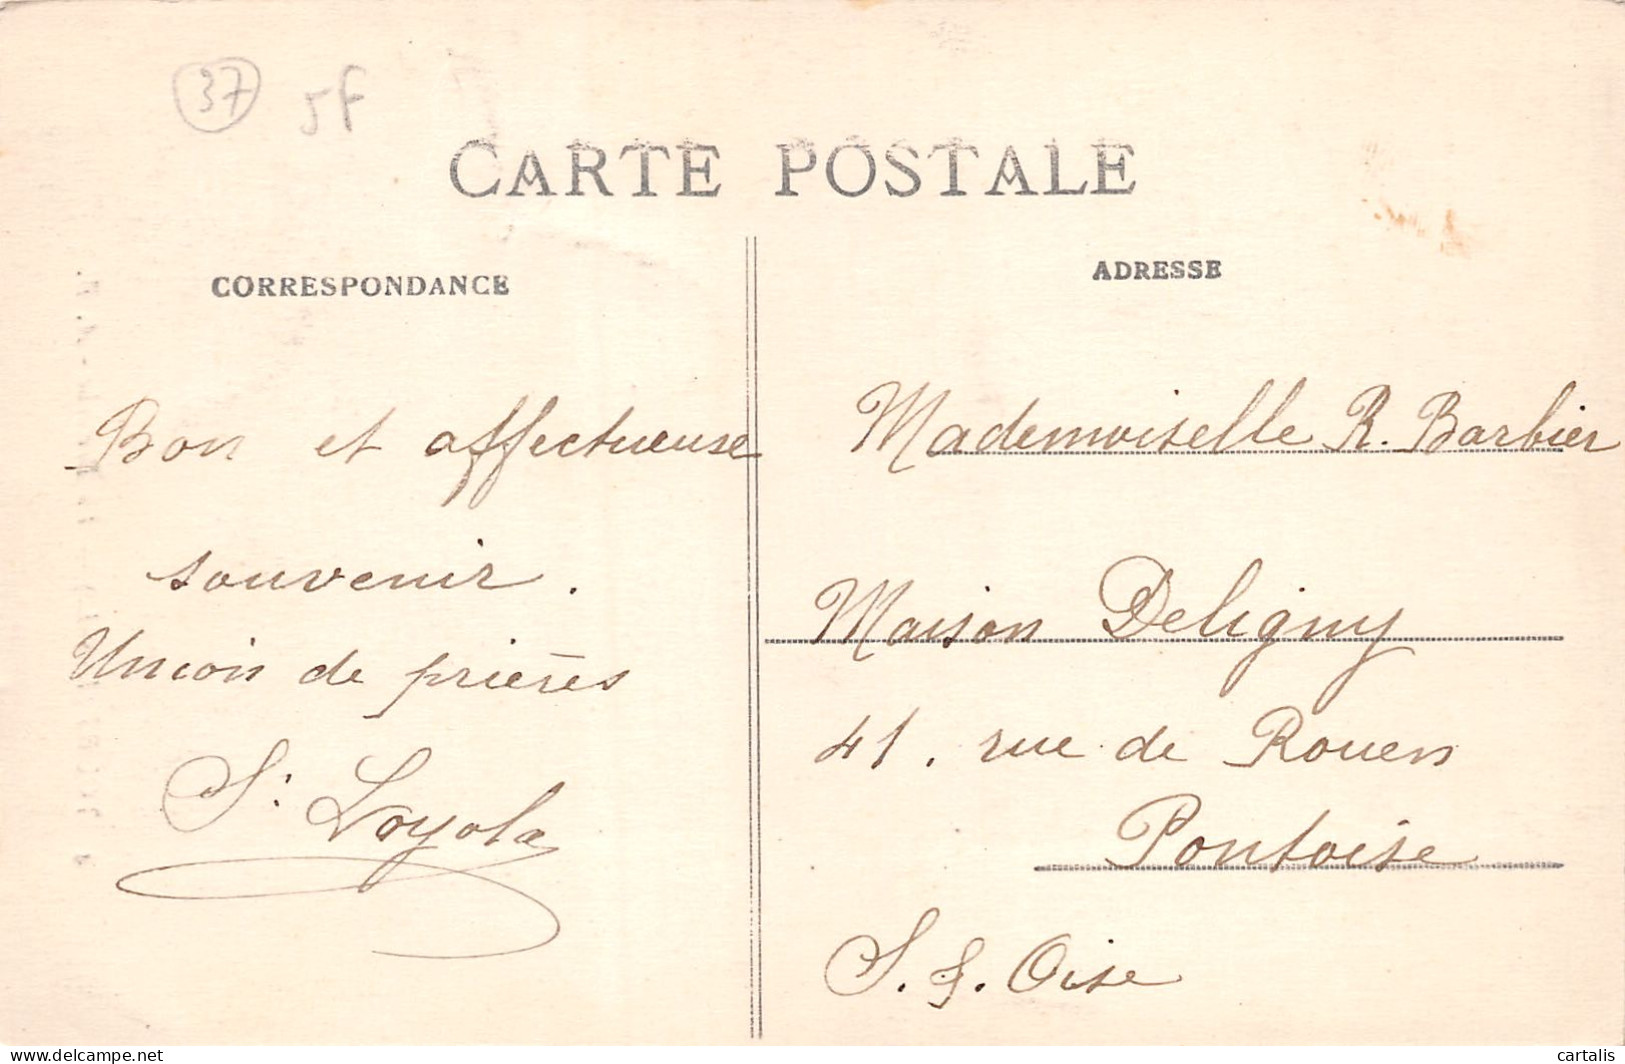 37 5F
CARTE POSTALE
CORRESPONDANCE
Bon et affectueuse
souvenir.
Union de prières
S: Loyola
ADRESSE
Mademoiselle R. Barbier
Maison Deligny
41. rue de Rouen
Pontoise
S. &. Oise
www.delcampe.net
cartalis